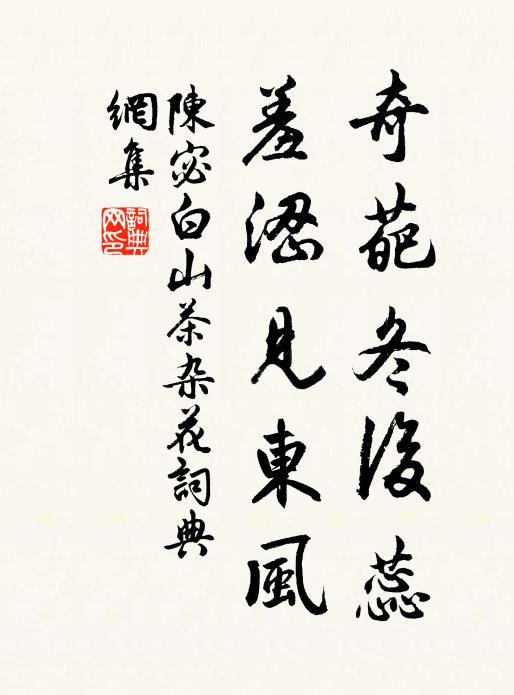 奇葩冬後蕊
羞澀見東風
陳宓白山茶杂花詞典
網集
詞典
网印